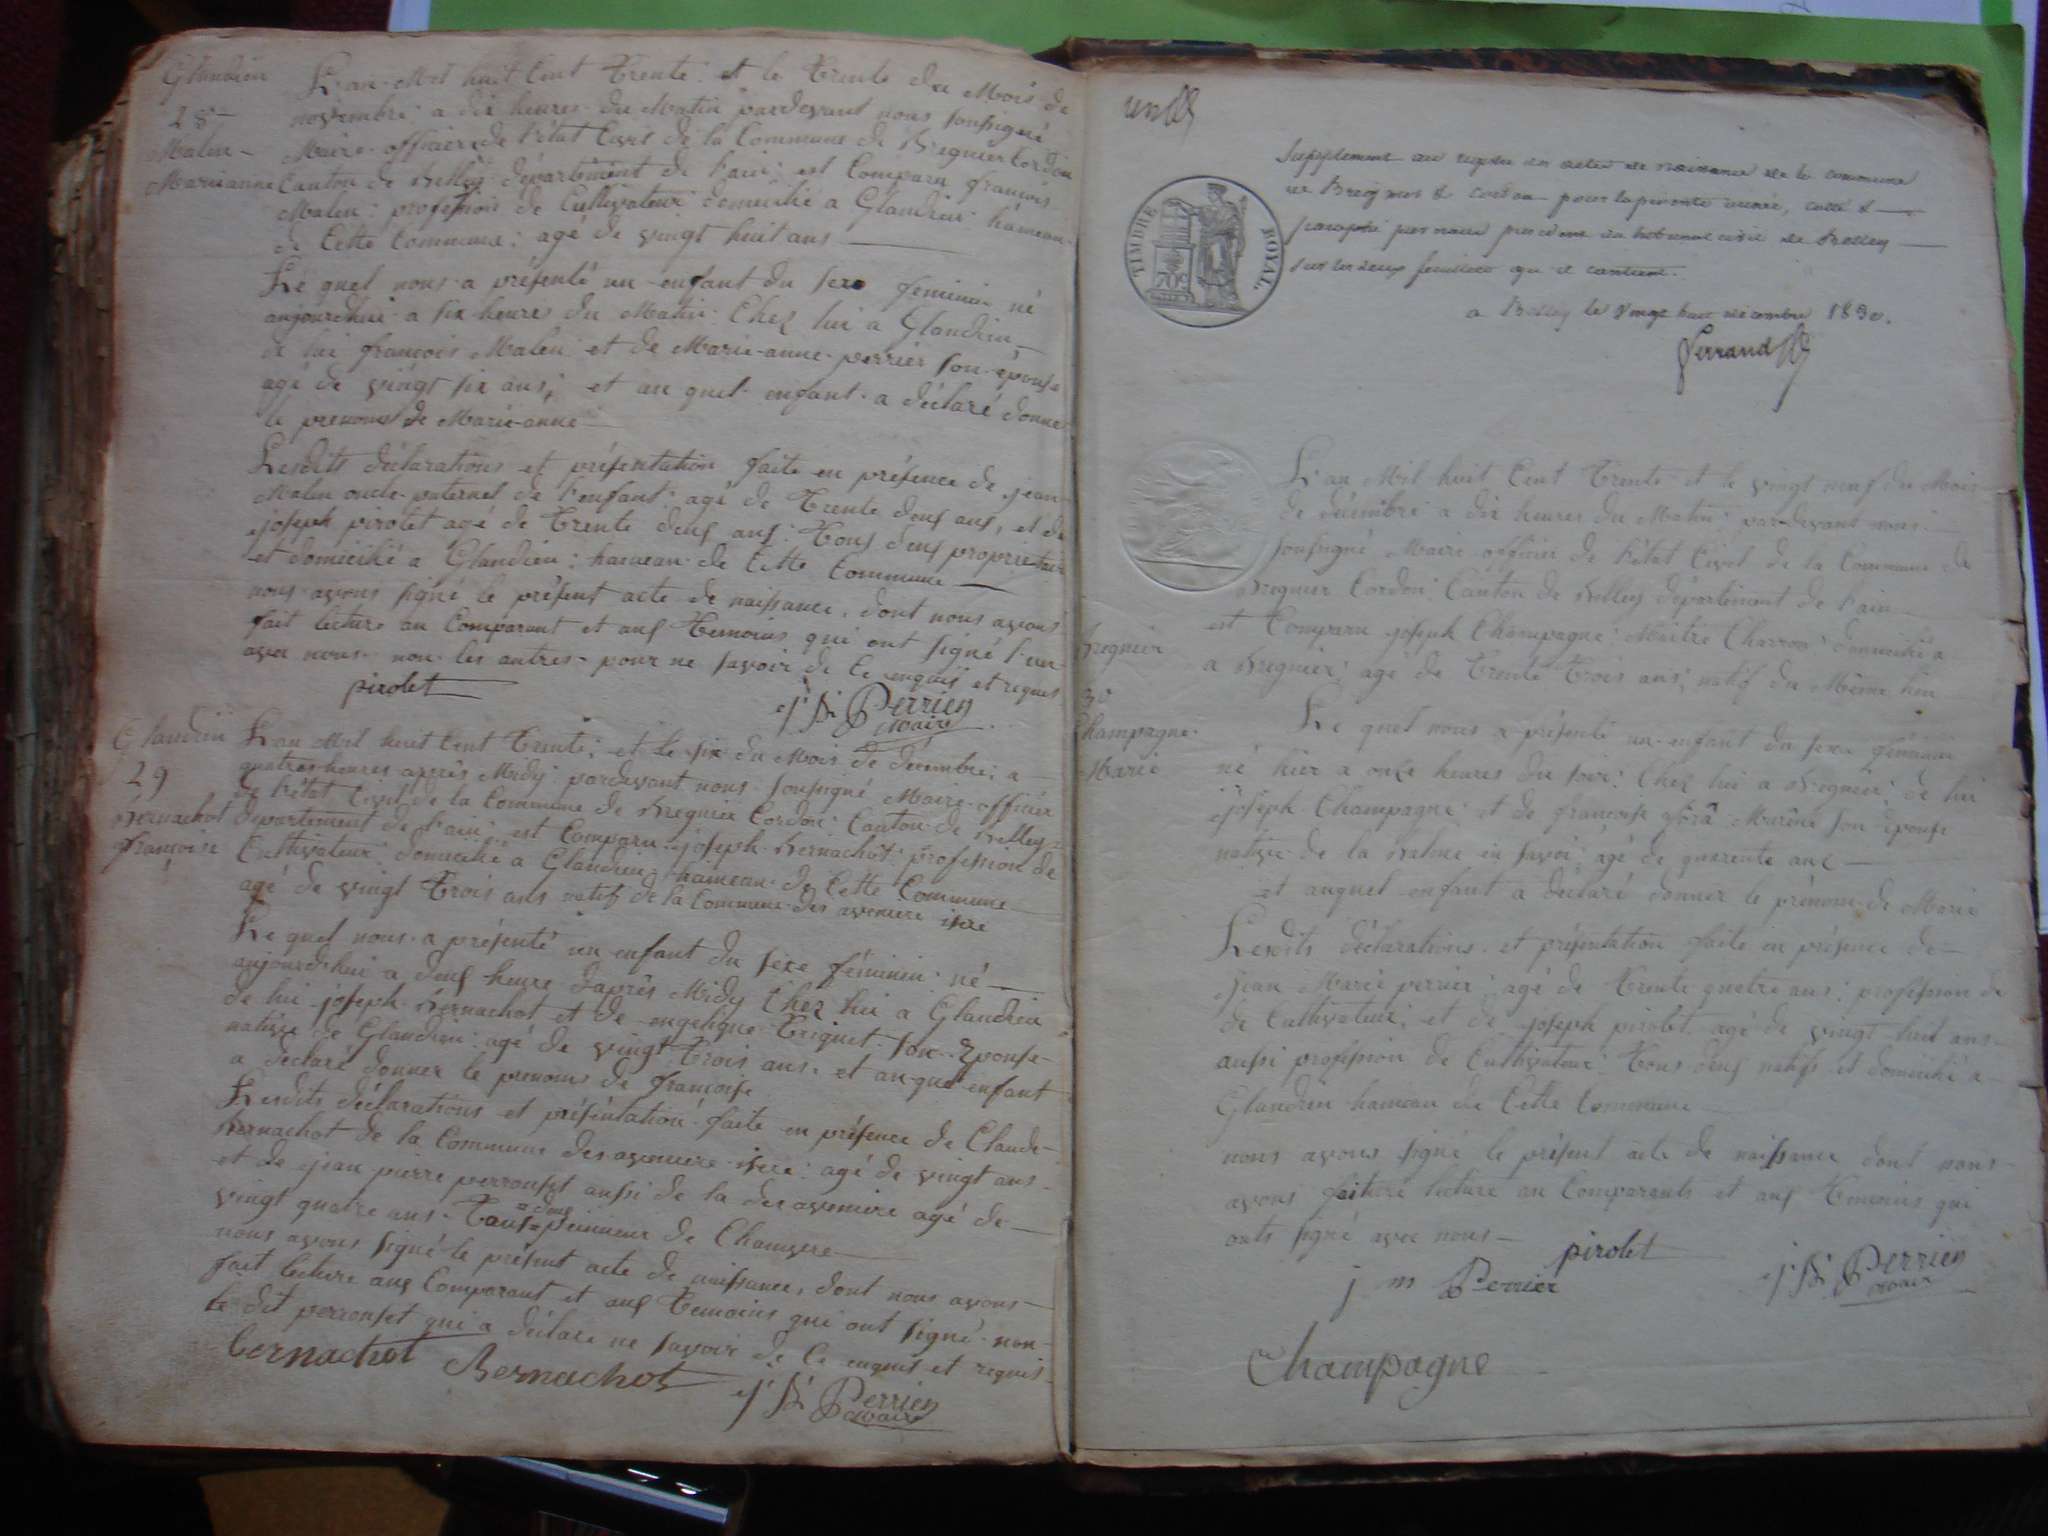 Glandieu
28
Malen
Marianne
L'an Mil huit Cent Trente: et le Trente du Mois de
novembre: a dix heures du Matin pardevant nous soussigné
Maire officier de l'état Civil de la Commune de Bregnier Cordon
Canton de Belley département de l'ain: est Comparu françois
Malen: profession de Cultivateur domicilié a Glandieu: hameau
de Cette Commune: agé de vingt huit ans
Le quel nous a présenté un enfant du sexe feminin né
aujourdhui a six heure du Matin: Chez lui a Glandieu
de lui françois Malen: et de Marie-anne perrier son épouse
agé de vingt six ans; et au quel enfant a déclaré donner
le prenoms de Marie-anne
Lesdits déclarations et présentation faite en présence de jean
Malen oncle paternel de l'enfant: agé de Trente deux ans, et de
joseph pirolet agé de Trente deux ans: Tous deux propriétaire
et domicilié a Glandieu: hameau de Cette Commune
nous avons signé le présent acte de naissance, dont nous avons
fait lecture au Comparant et aux Temoins qui ont signé l'un
avec nous non les autres pour ne savoir de Ce enquis et requis
pirolet
j Bte Perrier
Maire
Glandieu
29
Bernachot
françoise
L'an Mil huit Cent Trente; et le six du Mois de décembre; a
quatres heures après Midy: pardevant nous soussigné Maire officier
de l'état Civil de la Commune de Bregnier Cordon: Canton de Belley
département de l'ain; est Comparu joseph Bernachot: profession de
Cultivateur: domicilié a Glandieu hameau de Cette Commune
agé de vingt Trois ans natif de la Commune des aveniere isere
Le quel nous a présenté un enfant du sexe féminin: né
aujourd'hui a deux heure d'après Midy Chez lui a Glandieu
de lui joseph Bernachot et de engelique Triquet son Epouse
native de Glandieu: agé de vingt Trois ans. et au quel enfant
a déclaré donner le prenoms de françoise
Lesdits déclarations et présentation faite en présence de Claude
Bernachot de la Commune des aveniere isere: agé de vingt ans
et de jean pierre perrouset aussi de la des aveniere agé de
vingt quatre ans. Tous =deux= peineur de Chamvere
nous avons signé le présent acte de naissance, dont nous avons
fait lecture aux Comparant et aux Temoins qui ont signé non
le dit perrouset qui a déclaré ne savoir de Ce enquis et requis
bernachot
Bernachot
j Bte Perrier
Maire
Supplement au registre des actes de naissance de la commune
de Bregnier & cordon pour la presente année, coté &
paraphé par nous president du tribunal civil de Belley
sur les deux feuillets qu'il contient.
a Belley le vingt huit décembre 1830.
Ferrand
TIMBRE ROYAL.
Bregnier
30
Champagne
Marie
L'an Mil huit Cent Trente et le vingt neuf du Mois
de décembre a dix heures du Matin: par devant nous
soussigné Maire officier de l'état Civil de la Commune de
Bregnier Cordon: Canton de Belley département de l'ain
est Comparu joseph Champagne: Maitre Charron: domicilié a
a Bregnier; agé de Trente Trois ans; natif du Même lieu
Le quel nous a présenté un enfant du sexe féminin
né hier a onze heures du soir: Chez lui a Bregnier: de lui
joseph Champagne et de françoise Marêne son Epouse
native de la Balme en Savoi: agé de quarente ans
et auquel enfant a déclaré donner le prénom de Marie
Lesdits déclarations et présentation faite en présence de
jean Marie perrier: agé de Trente quatre ans: profession de
de Cultivateur; et de joseph pirolet agé de vingt huit ans
aussi profession de Cultivateur: Tous deux natifs et domicilié a
Glandieu hameau de Cette Commune
nous avons signé le présent acte de naissance dont nous
avons fait lecture au Comparants et aux Temoins qui
onts signé avec nous
pirolet
j m Perrier
j Bte Perrier
Maire
Champagne